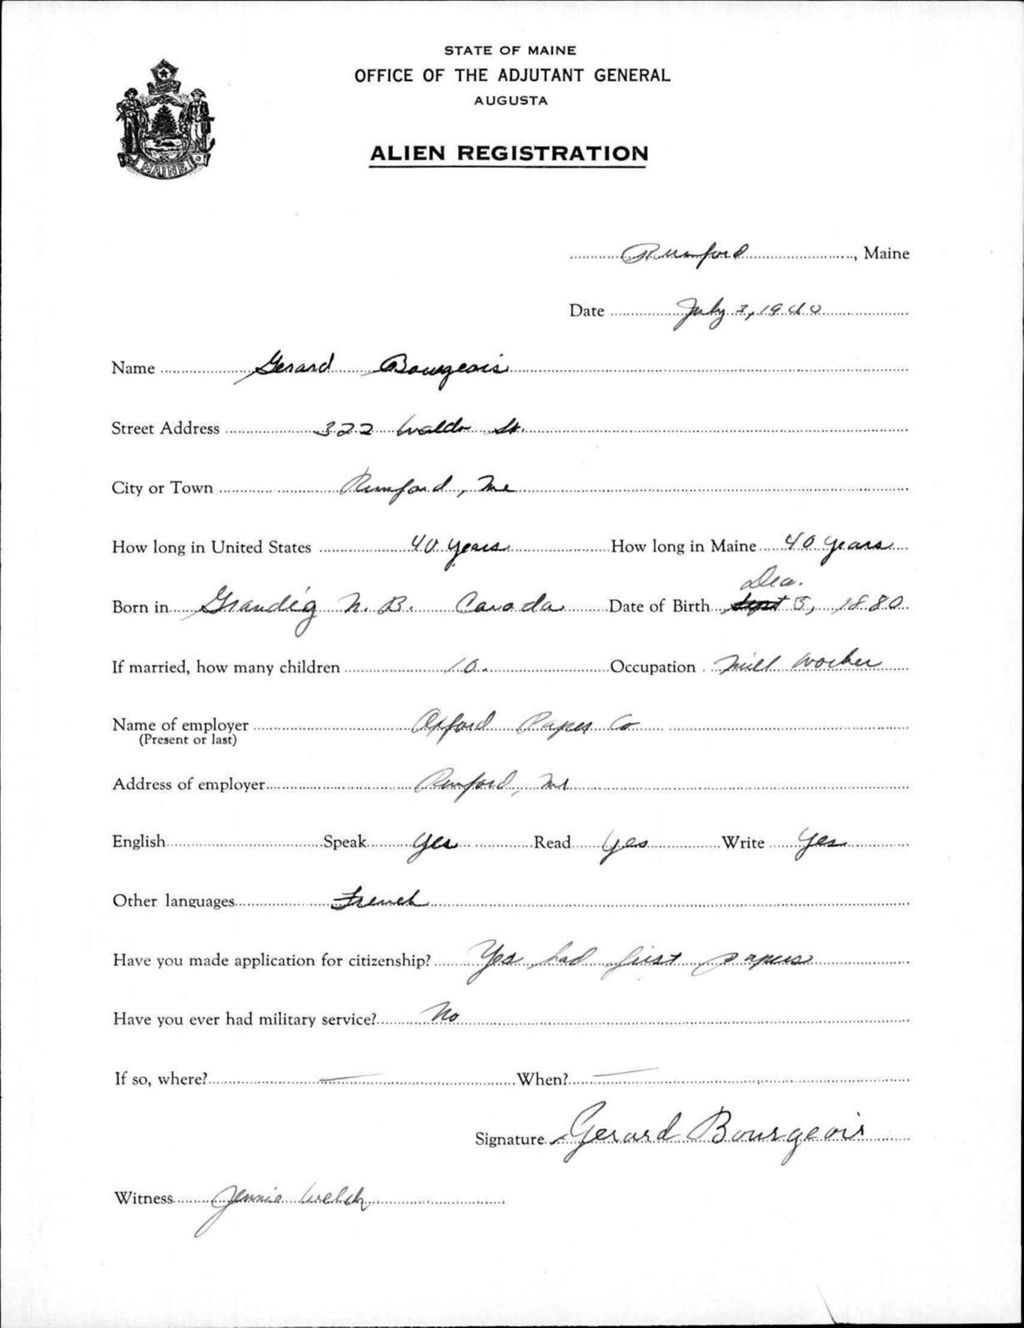 STATE OF MAINE
OFFICE OF THE ADJUTANT GENERAL
AUGUSTA
ALIEN REGISTRATION
MAINE
Rumford, Maine
Date July 3, 1940
Name Gerard Bourgeois
Street Address 322 Waldo St.
City or Town Rumford, Me
How long in United States 40 years How long in Maine 40 years
Dec.
Born in Grandég N. B. Canada Date of Birth Sept 5, 1880
If married, how many children 10. Occupation Mill Worker
Name of employer Oxford Paper Co
(Present or last)
Address of employer Rumford, Me
English Speak Yes Read yes Write Yes
Other languages French
Have you made application for citizenship? Yes had first papers
Have you ever had military service? No
If so, where? — When? —
Signature Gerard Bourgeois
Witness Jennie Welch